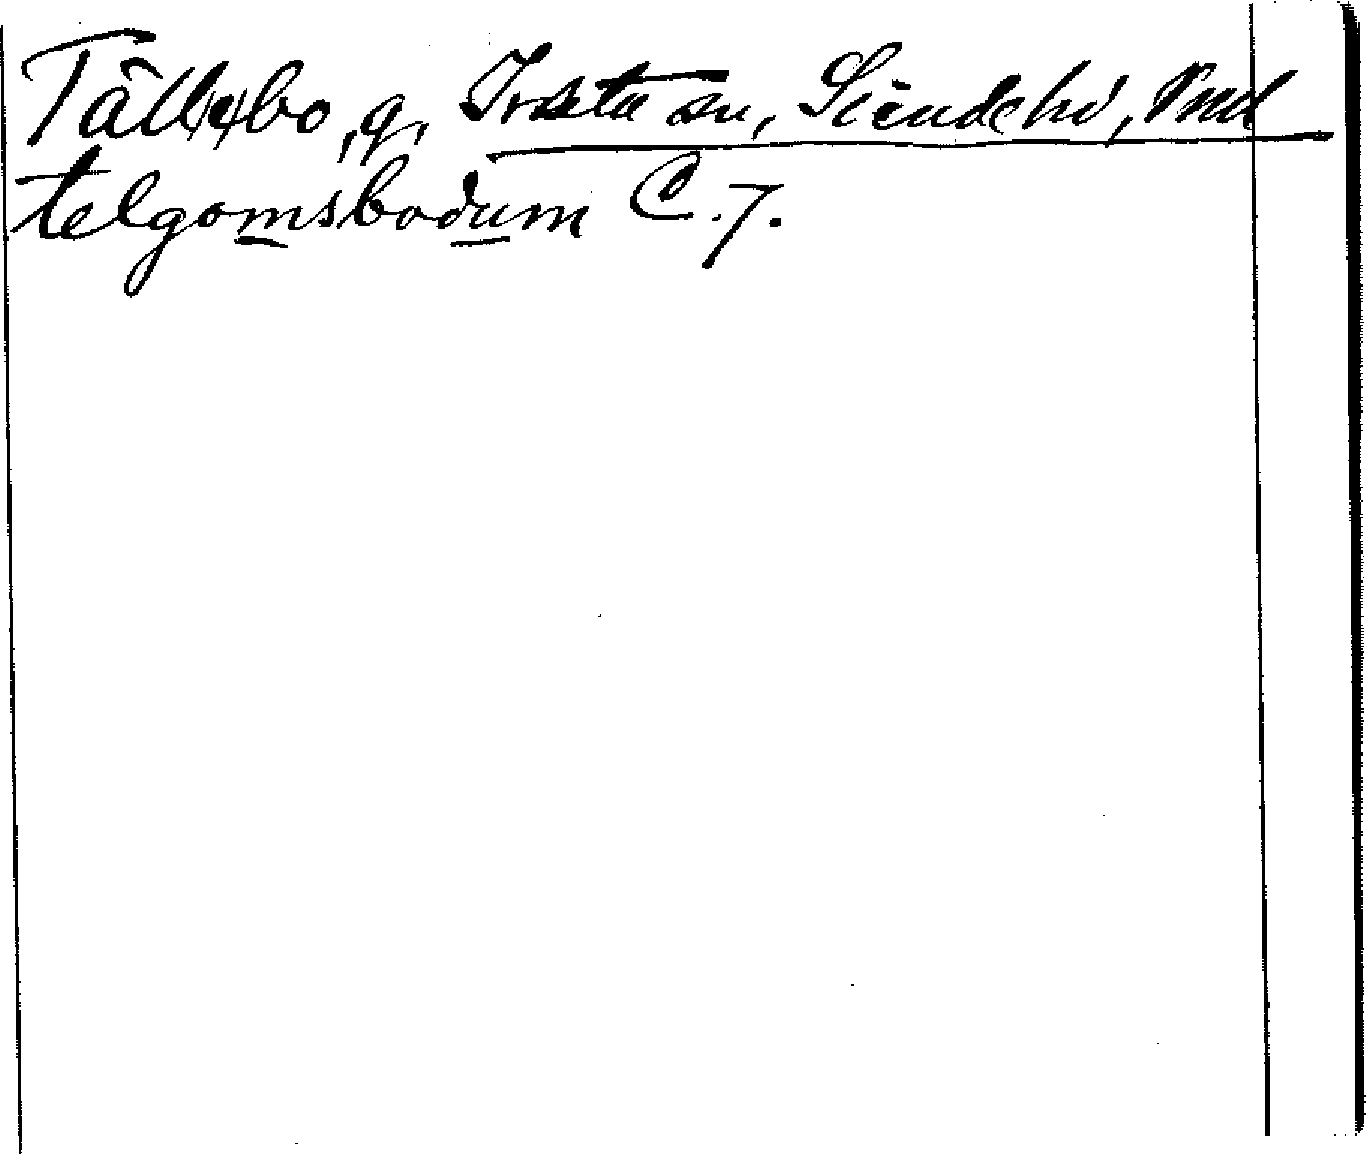 Tälle(y)bo, g, Irsta sn, Siende hd, Vmd
telgomsbodum C. 7.